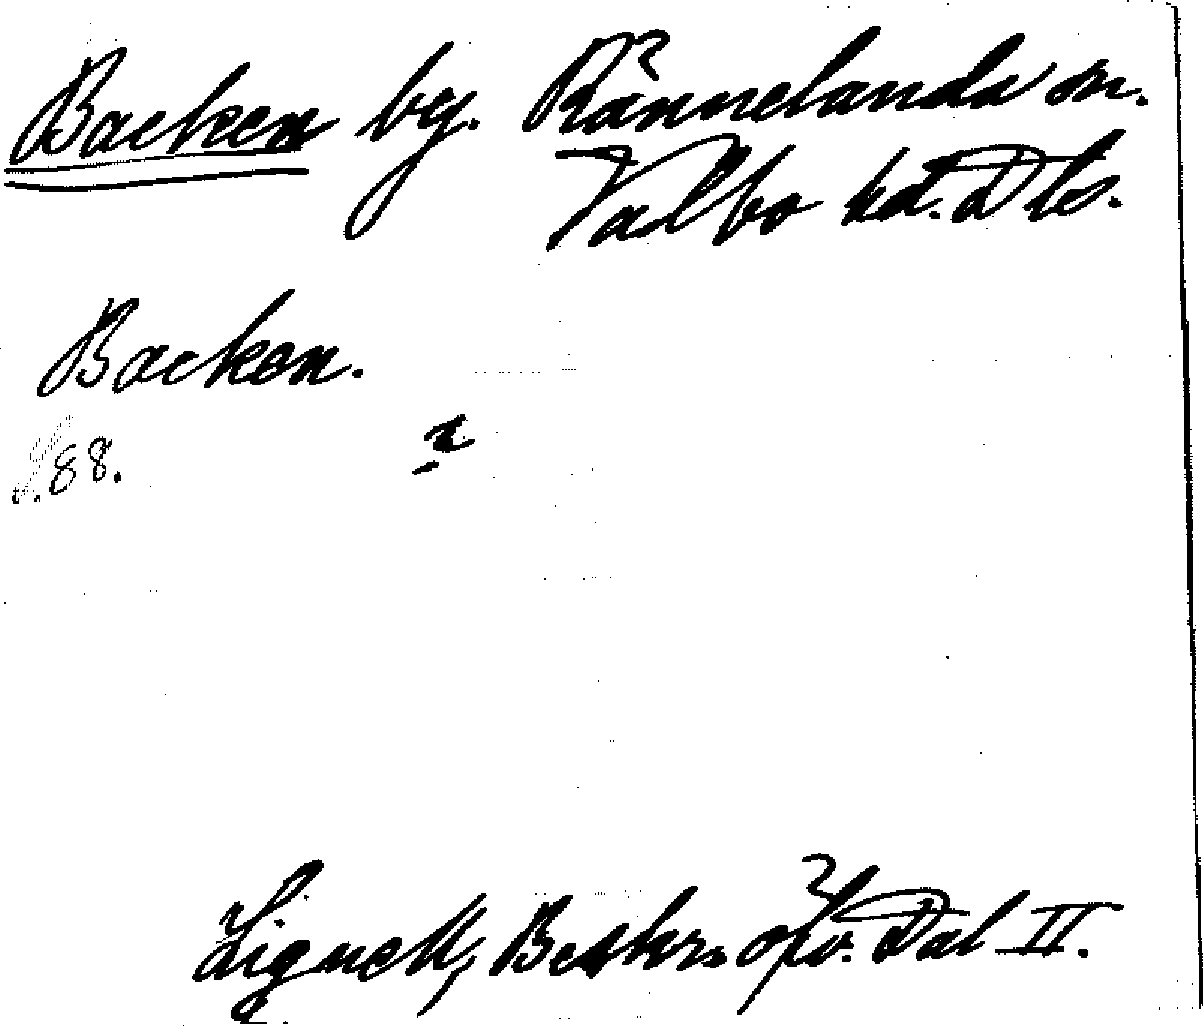 Backen by. Rännelanda sn.
Valbo hd. Dls.
Backen.
S. 88.
Lignell, Beskr. öfv. Dal II.